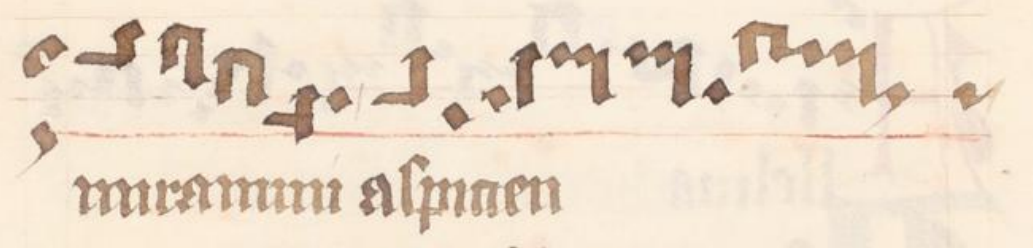 miramini aspicien